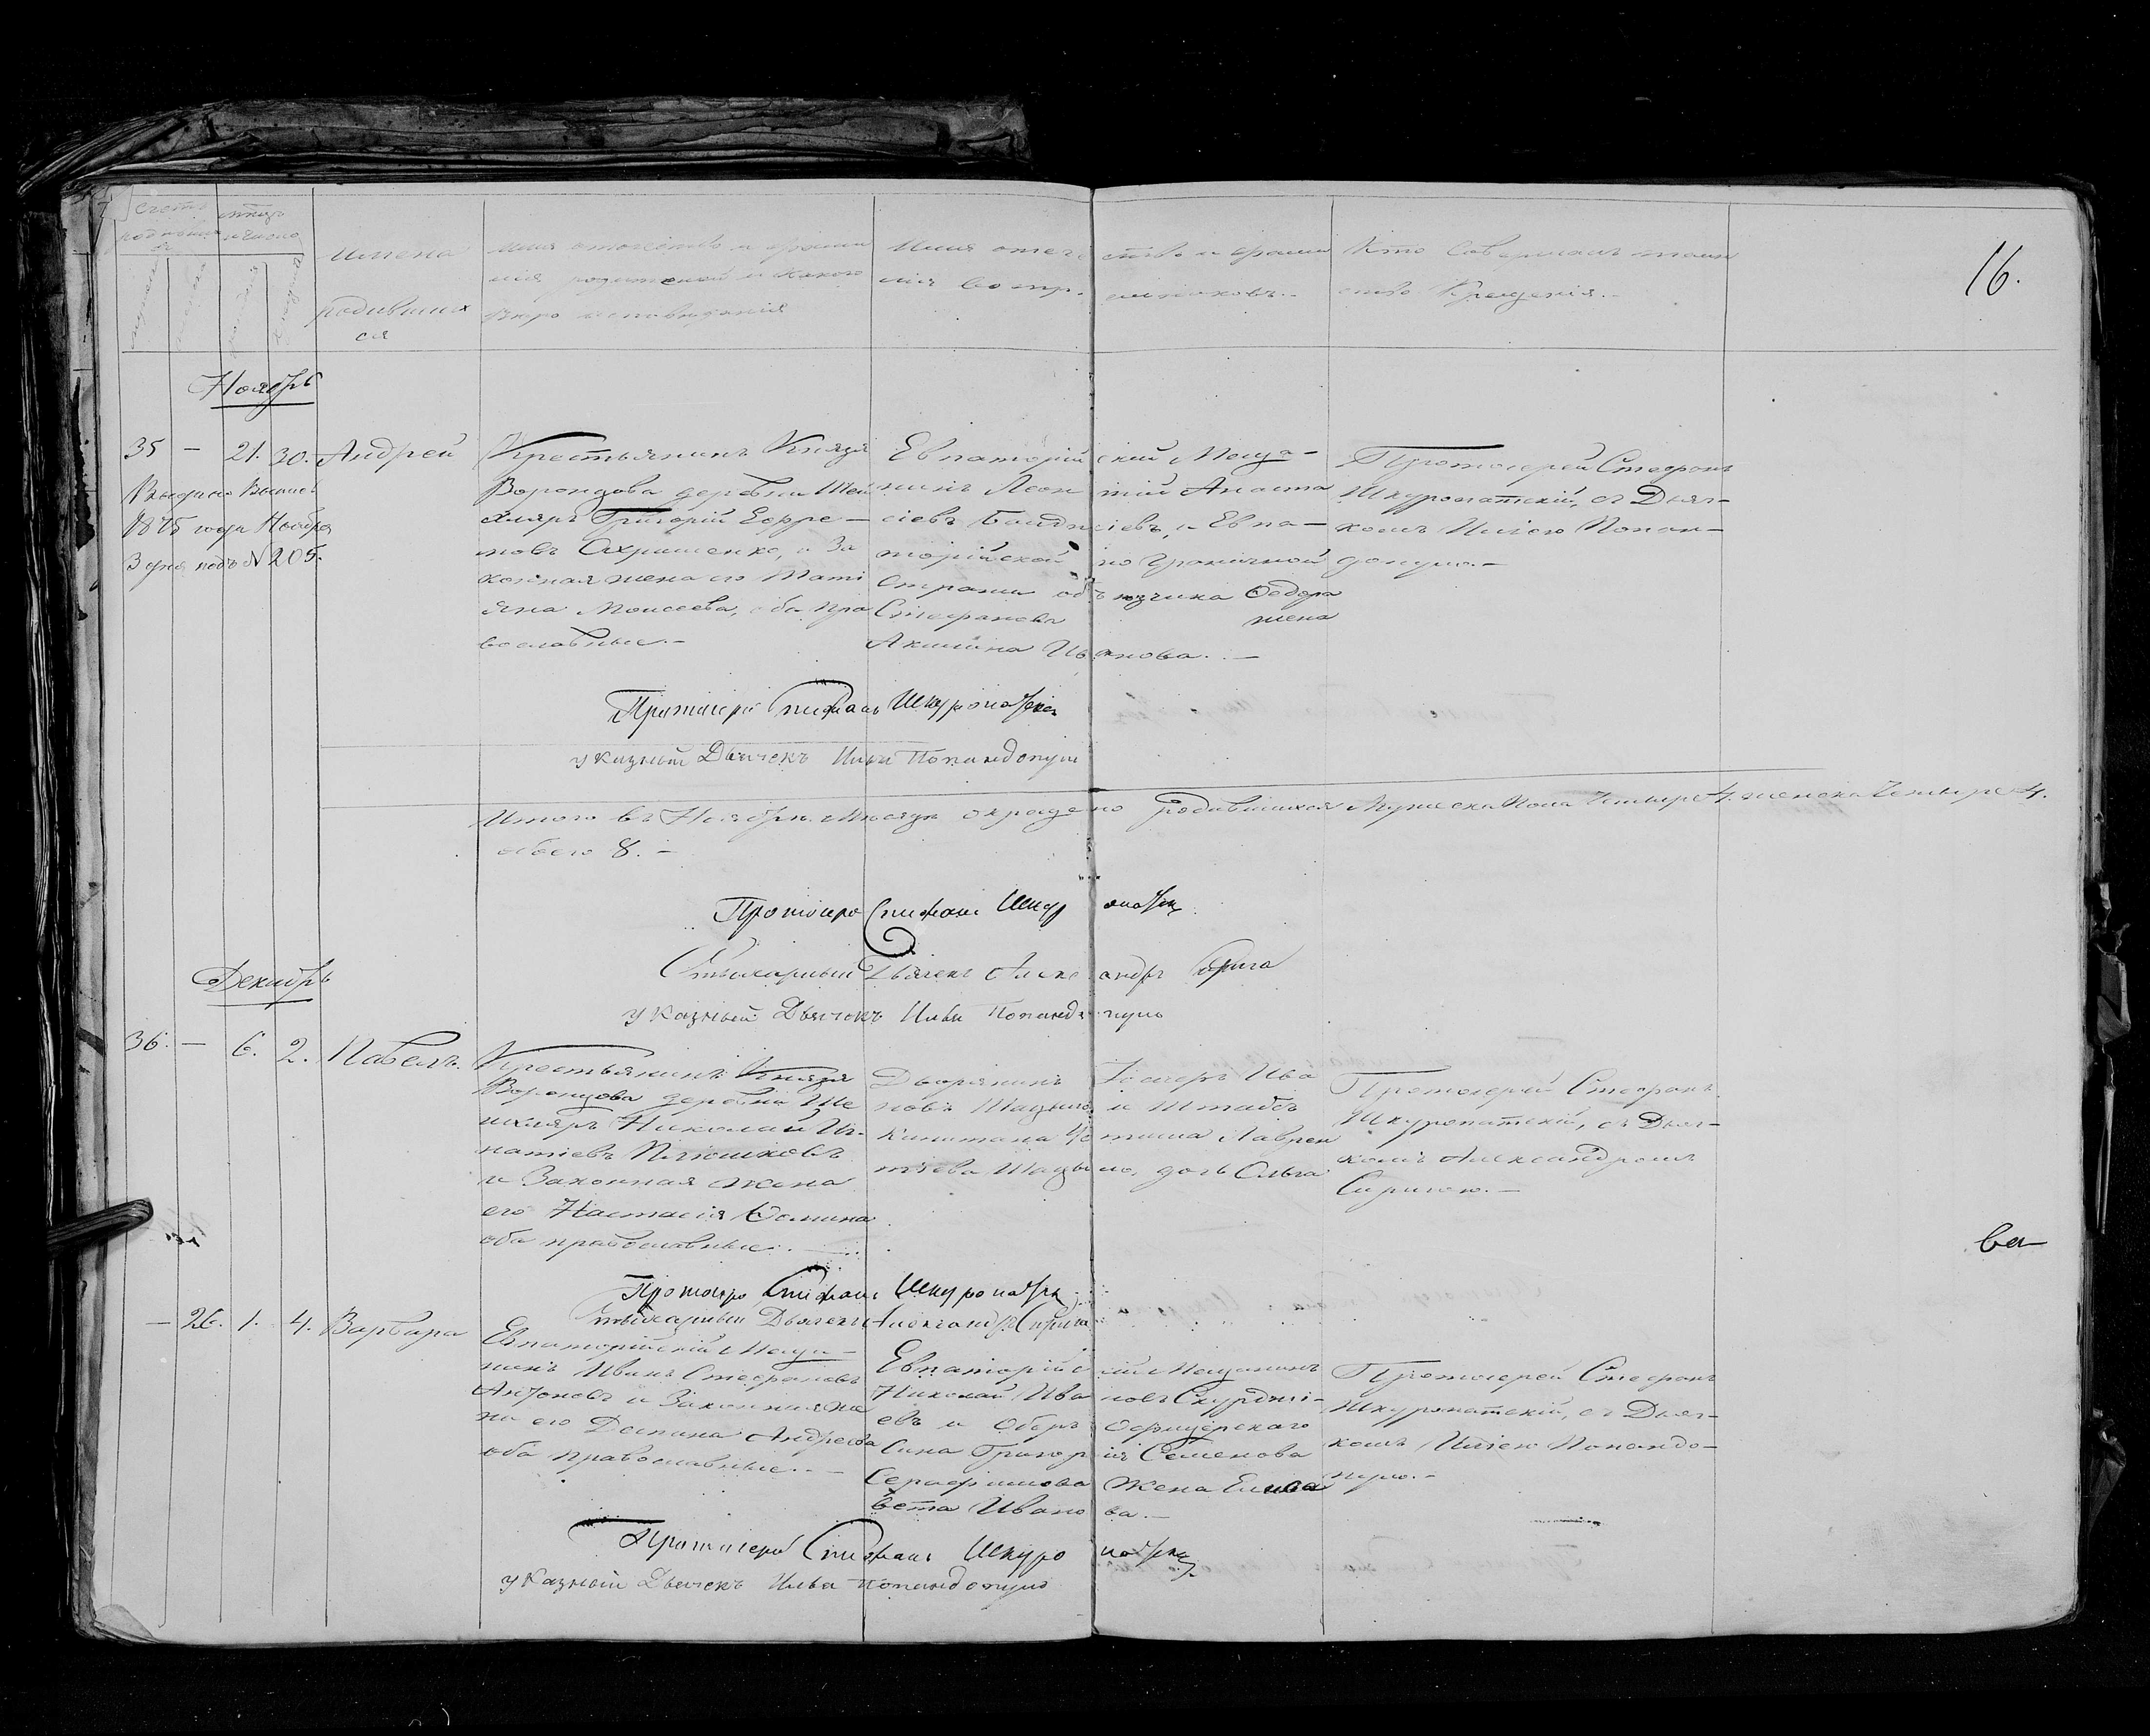 16.
Счетъ
родившихся
мужеска
женска
рожденія
крещенія
Имена
родивших
ся
Имя отечество и фами
лія родителей и какого
вѣроисповѣданія
Имя отече ство и фами
лія воспр. емниковъ.-
Кто Совершалъ таин
ство Крещенія.-
Ноябрь
35 - 21. 30. Андрей
1875 года Ноября
3 дня подъ № 205.
Крестьянинъ Князя
Воронцова деревни
Григорій Ефре-
мовъ и За
конная жена его Тати
яна Моисеева, оба пра
вославные.-
Евпаторій скій Меща-
нинъ Леон тій Анаста
сіевъ и Евпа-
торійской по граничной
Стражи объ ѣзчика Ѳедора
Стефанова жена
Акилина Ив анова. -
Протоіерей Стефанъ
Шкуропатскій, съ Дьяч-
комъ Иліею Попан-
допуло.-
Протоіерей Стефанъ Шкуропатскій
указный Дьячекъ Илья Попандопуло
Итого въ Ноябрѣ Мѣсяцѣ окреще но родившихся Мужеска Пола Четыре 4. женска Четыре 4.
обоего 8. -
Протоіерей Стефанъ Шкур опатскій
Стихарный Дьячекъ Алекс андръ Сирига
указный Дьячекъ Илья Попандо пуло
Декабрь
36. - 6. 2. Павелъ.
Крестьянинъ Князя
Воронцова деревни
Николай Иг-
натіевъ
и Законная жена
его Настасія Ѳомина
оба православные. -
Дворянинъ Ива
новъ и Штабсъ
Капитана Лаврен
тіева дочь Ольга
Протоіерей Стефанъ
Шкуропатскій, съ Дьяч-
комъ Александромъ
Сиригою.-
ва
Протоіерей Стефанъ Шкуропатскій
Стихарный Дьячекъ Александръ Сирига
- 26. 1. 4. Варвара
Евпаторійскій Меща-
нинъ Иванъ Стефановъ
Антоновъ и Законная же
на его Деспина Андреева
оба православные. -
Евпаторійс кій Мещанинъ
Николай Ива новъ
евъ и Оберъ Офицерскаго
Сына Григор ія Семенова
Серафимова Жена Елиса
вета Ивано ва.-
Протоіерей Стефанъ
Шкуропатскій, съ Дьяч-
комъ Иліею Попандо-
пуло.-
Протоіерей Стефанъ Шкуро патскій
указный Дьячекъ Илья Попандопуло